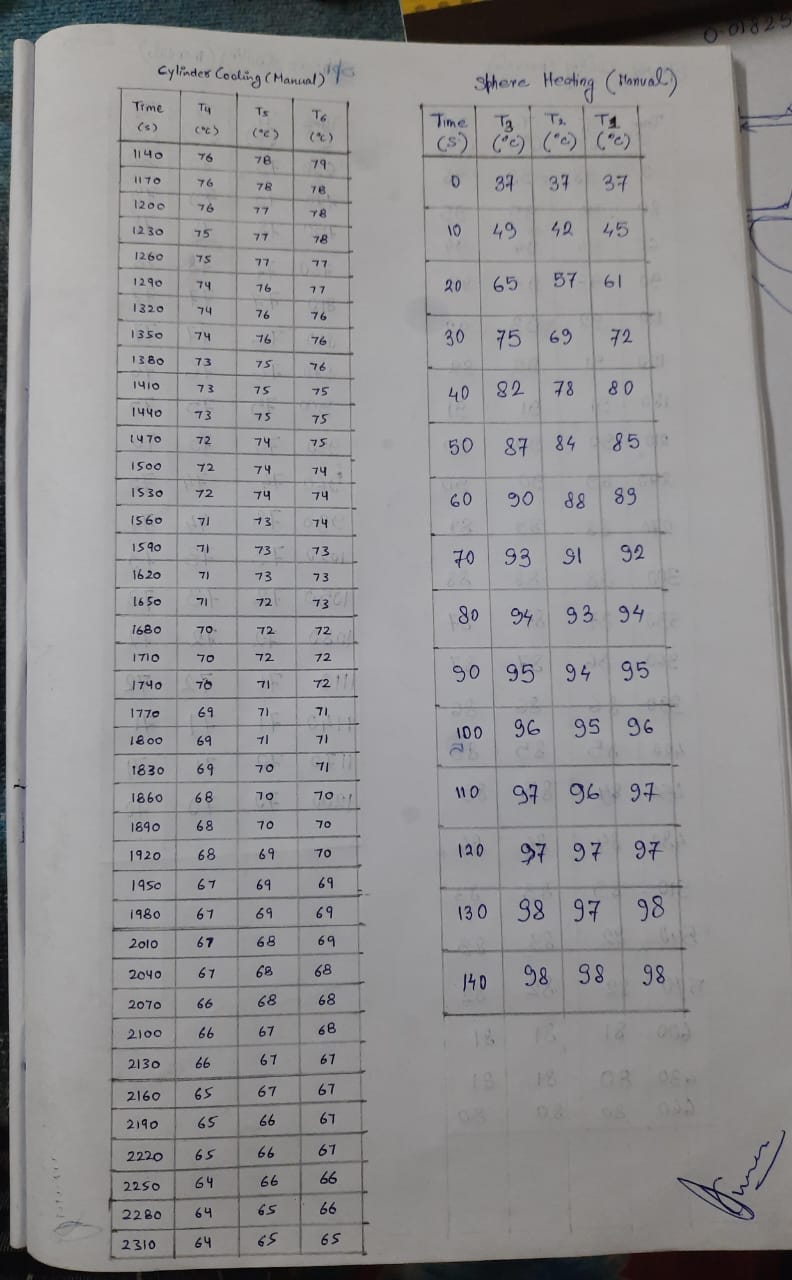 0.01825
Cylinder Cooling (Manual)
Time (s) T4 (°C) T5 (°C) T6 (°C)
1140 76 78 79
1170 76 78 78
1200 76 77 78
1230 75 77 78
1260 75 77 77
1290 74 76 77
1320 74 76 76
1350 74 76 76
1380 73 75 76
1410 73 75 75
1440 73 75 75
1470 72 74 75
1500 72 74 74
1530 72 74 74
1560 71 73 74
1590 71 73 73
1620 71 73 73
1650 71 72 73
1680 70 72 72
1710 70 72 72
1740 70 71 72
1770 69 71 71
1800 69 71 71
1830 69 70 71
1860 68 70 70
1890 68 70 70
1920 68 69 70
1950 67 69 69
1980 67 69 69
2010 67 68 69
2040 67 68 68
2070 66 68 68
2100 66 67 68
2130 66 67 67
2160 65 67 67
2190 65 66 67
2220 65 66 67
2250 64 66 66
2280 64 65 66
2310 64 65 65
Sphere Heating (Manual)
Time (s) T3 (°C) T2 (°C) T1 (°C)
0 37 37 37
10 49 42 45
20 65 57 61
30 75 69 72
40 82 78 80
50 87 84 85
60 90 88 89
70 93 91 92
80 94 93 94
90 95 94 95
100 96 95 96
110 97 96 97
120 97 97 97
130 98 97 98
140 98 98 98